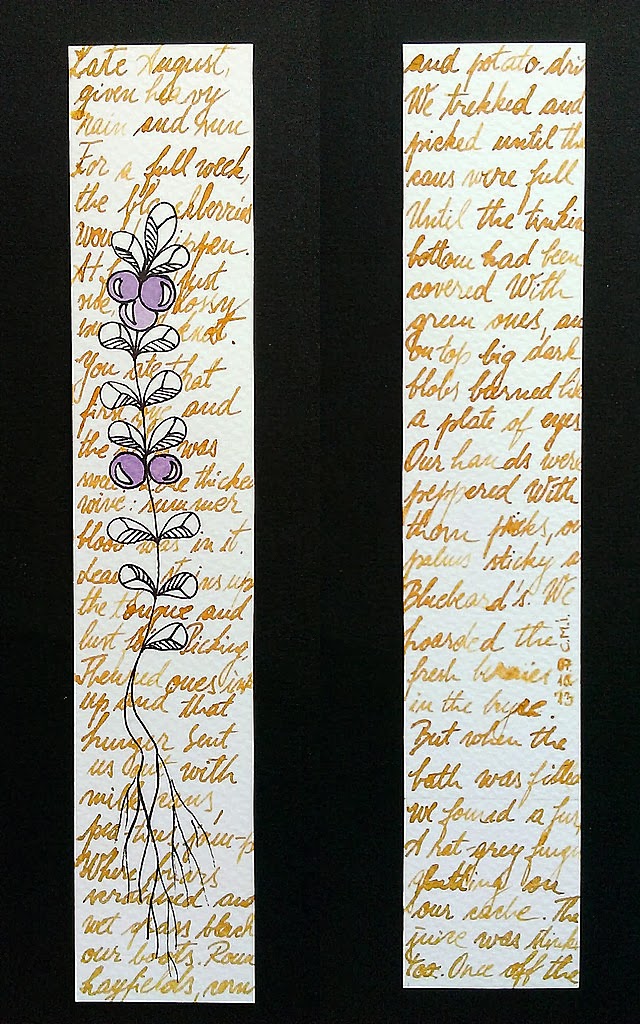 Late August,
given heavy
rain and sun
For a full week,
the blackberries
would rippen.
At just
one, glossy
knot.
You ate that
first one and
the was
sweet like thicke
wine: summer
blood was in it.
Leav stains up
the tongue and
lust for Picking.
Then red ones ink
up and that
hunger Sent
us out with
milk cans,
pea tins, jam-p
Where briars
scratched and
wet grass bleach
our boots. Roun
hayfields, corn
and potato-dri
We trekked and
picked until the
cans were full
Until the tinklin
bottom had been
covered With
green ones, an
on top big dark
blobs burned lik
a plate of eyes
Our hands were
peppered With
thorn pricks, ou
palms sticky a
Bluebeard's. We
hoarded the
fresh berries i
in the byre.
But when the
bath was filled
We found a fur,
A rat-grey fungu
glutting on
our cache. The
juice was stinki
too. Once off the
C.M.I.